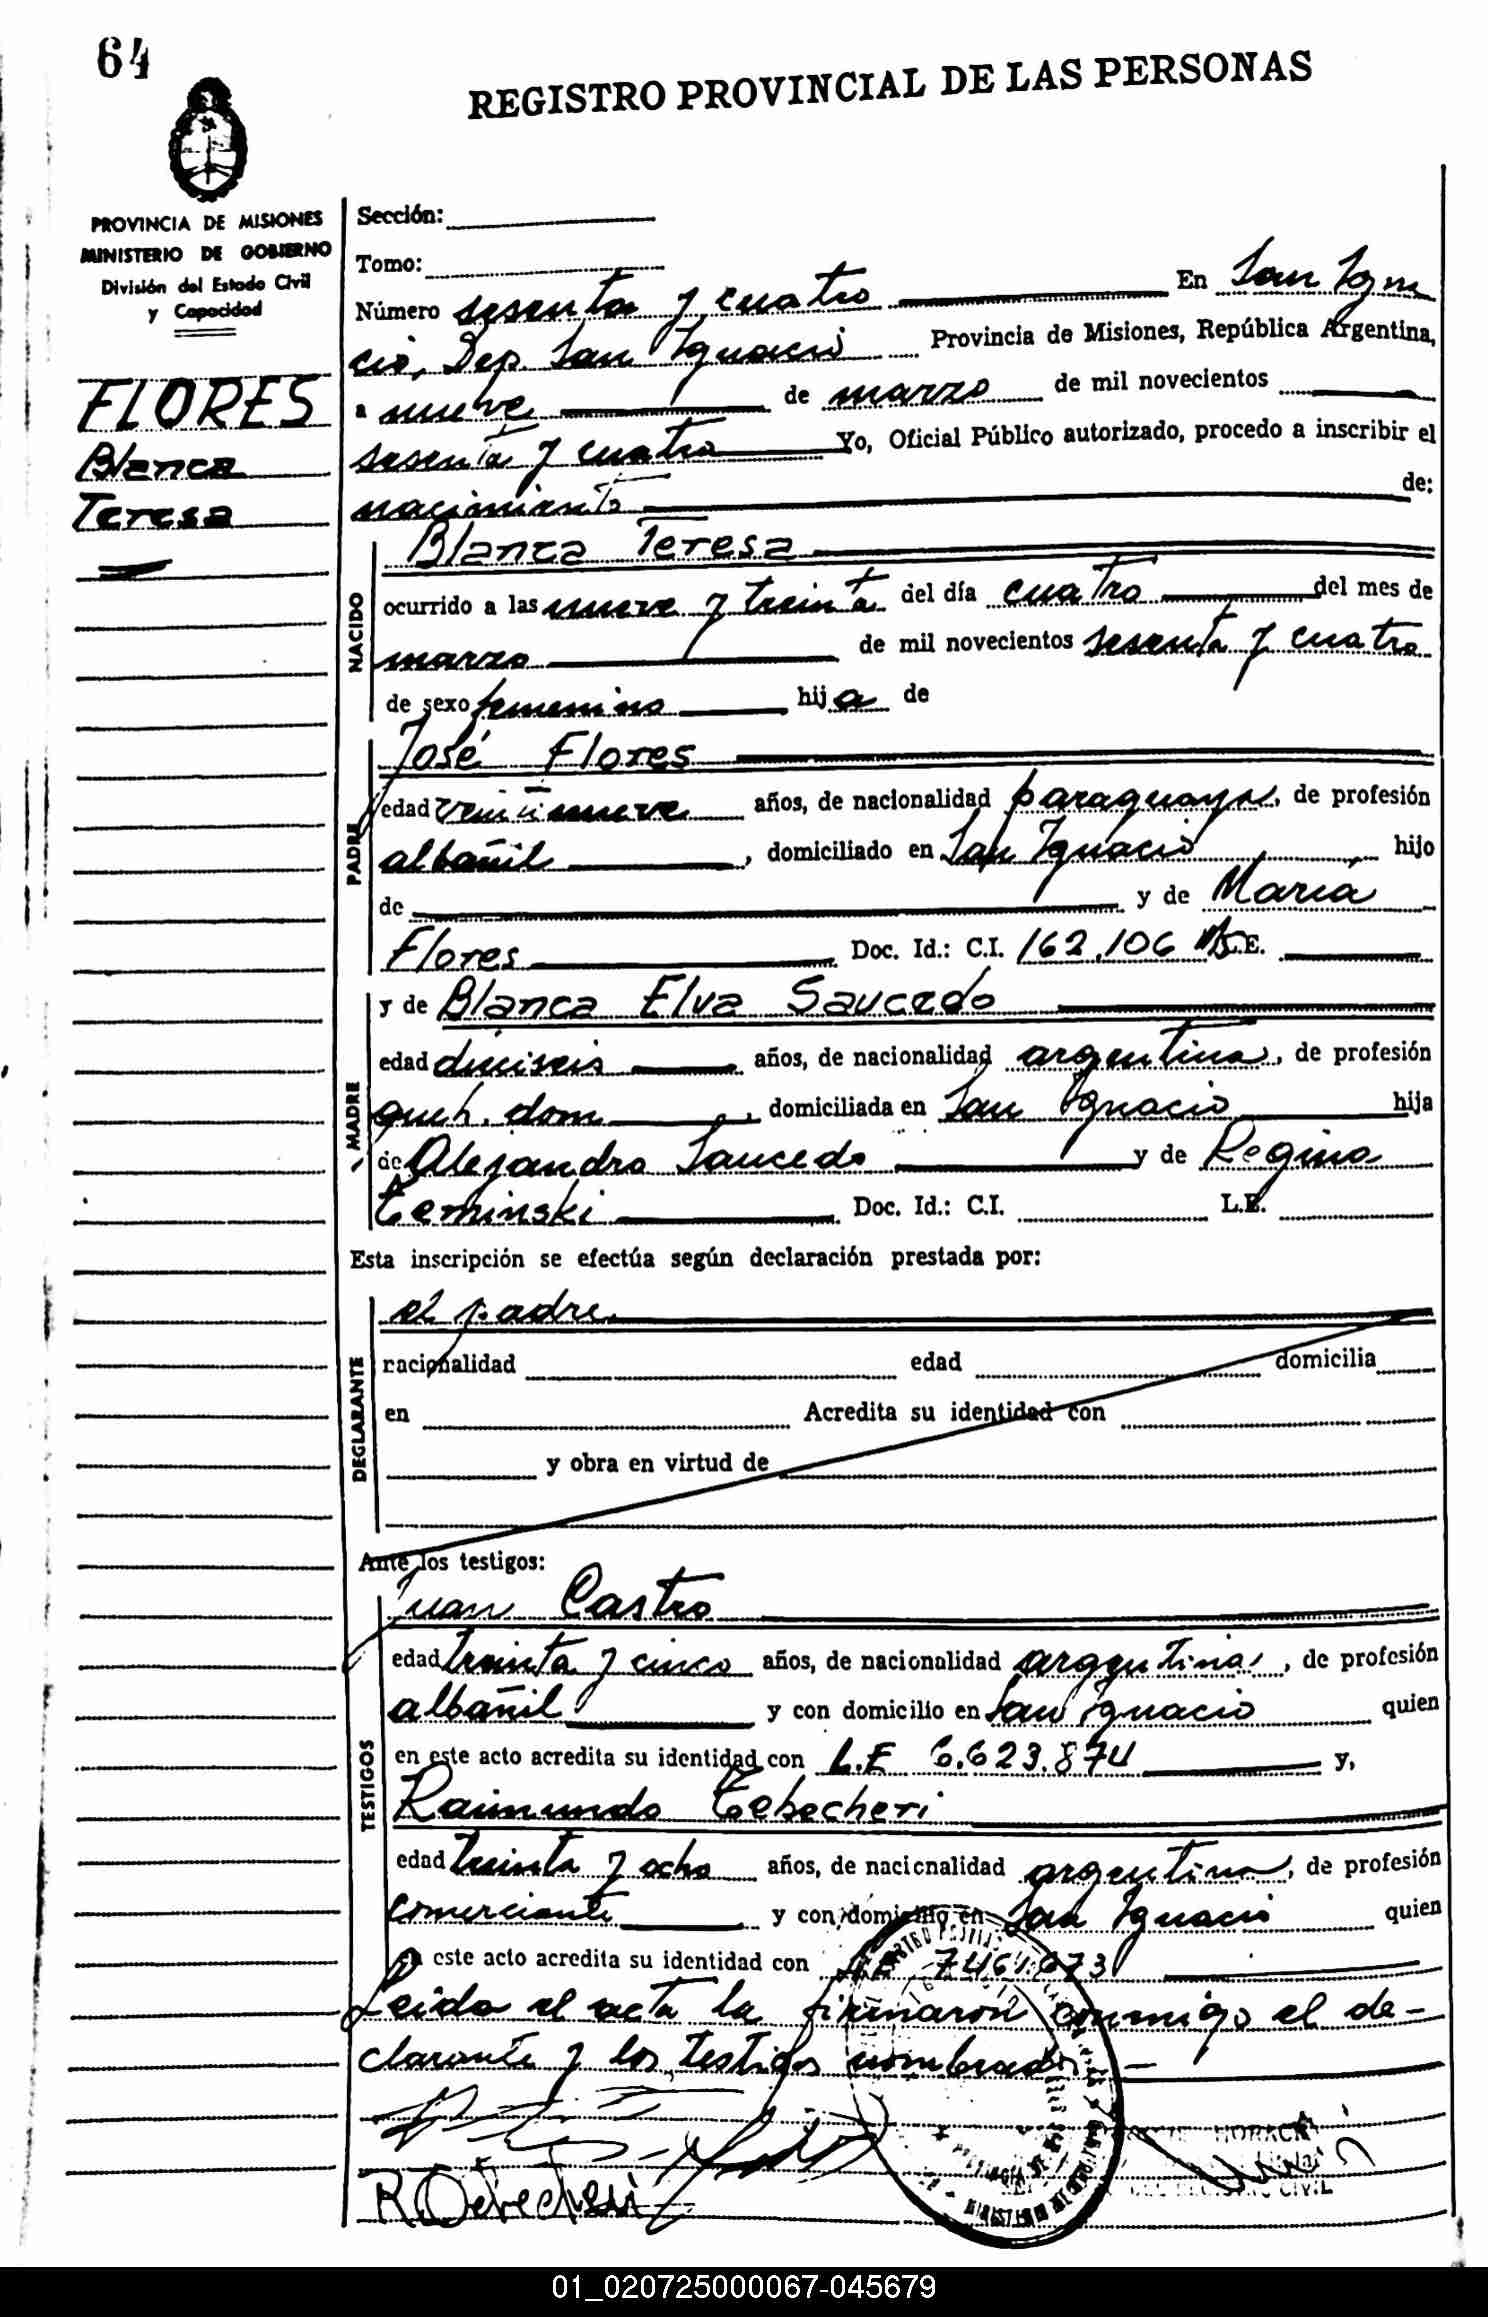 64
REGISTRO PROVINCIAL DE LAS PERSONAS
PROVINCIA DE MISIONES
MINISTERIO DE GOBIERNO
División del Estado Civil
y Capacidad
FLORES
Blanca
Teresa
Sección:
Tomo:
Número sesenta y cuatro En San Igna
cio, Dep. San Ignacio Provincia de Misiones, República Argentina,
a nueve de marzo de mil novecientos
sesenta y cuatro Yo, Oficial Público autorizado, procedo a inscribir el
nacimiento de:
NACIDO
Blanca Teresa
ocurrido a las nueve y treinta del día cuatro del mes de
marzo de mil novecientos sesenta y cuatro
de sexo femenino hija de
PADRE
José Flores
edad veintinueve años, de nacionalidad paraguaya, de profesión
albañil, domiciliado en San Ignacio, hijo
de y de María
Flores Doc. Id.: C.I. 162.106 L.E.
MADRE
y de Blanca Elva Saucedo
edad dieciseis años, de nacionalidad argentina, de profesión
queh. dom, domiciliada en San Ignacio hija
de Alejandro Saucedo y de Regina
Teminski Doc. Id.: C.I. L.E.
Esta inscripción se efectúa según declaración prestada por:
DECLARANTE
el padre
nacionalidad edad domicilia
en Acredita su identidad con
y obra en virtud de
Ante los testigos:
TESTIGOS
Juan Castro
edad treinta y cinco años, de nacionalidad argentina, de profesión
albañil y con domicilio en San Ignacio quien
en este acto acredita su identidad con L.E 6.623.874 y,
Raimundo Tebecheri
edad treinta y ocho años, de nacionalidad argentina, de profesión
comerciante y con domicilio en San Ignacio quien
en este acto acredita su identidad con LE 7461073
Leida el acta la firmaron conmigo el de-
clarante y los testigos nombrados
HORACI
DEL REGISTRO CIVIL
01_020725000067-045679